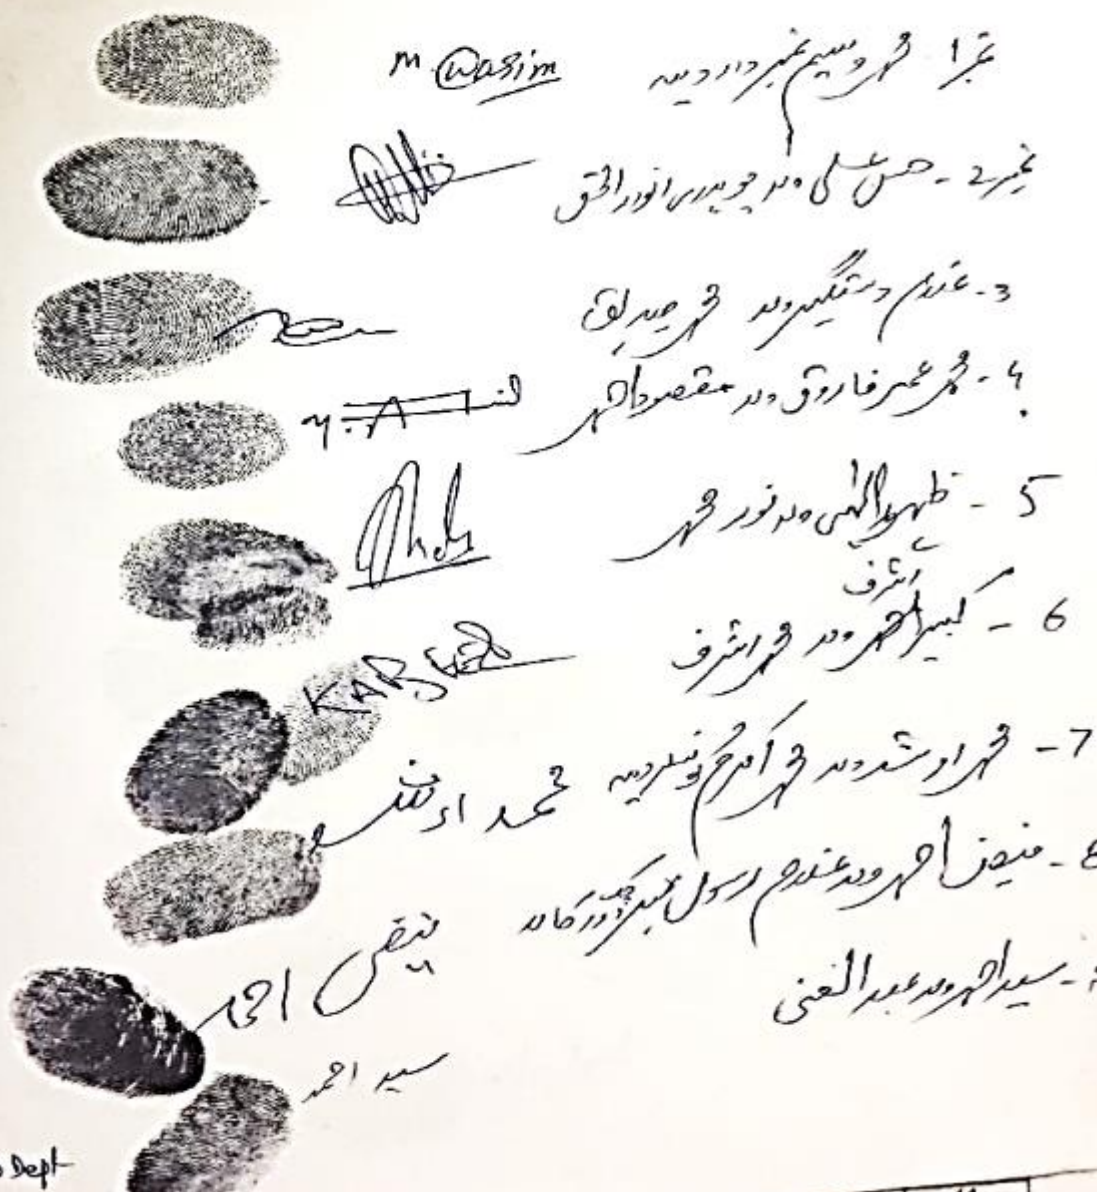 نمبر1 محمد وسیم نمبردار دیہہ M. Wasim
نمبر2 - حسن علی ولد چوہدری انوار الحق
3- غلام دستگیر ولد محمد صدیق
4- محمد عمر فاروق ولد مقصود احمد
5 - ظہور الٰہی ولد نور محمد
اشرف
6 - کبیر احمد ولد محمد اشرف KABEER
7- محمد ارشد ولد محمد اکرم کونسلر دیہہ محمد ارشد
8- فیض احمد ولد غلام رسول فیض احمد
سید احمد ولد عبدالغنی
سید احمد
Dept